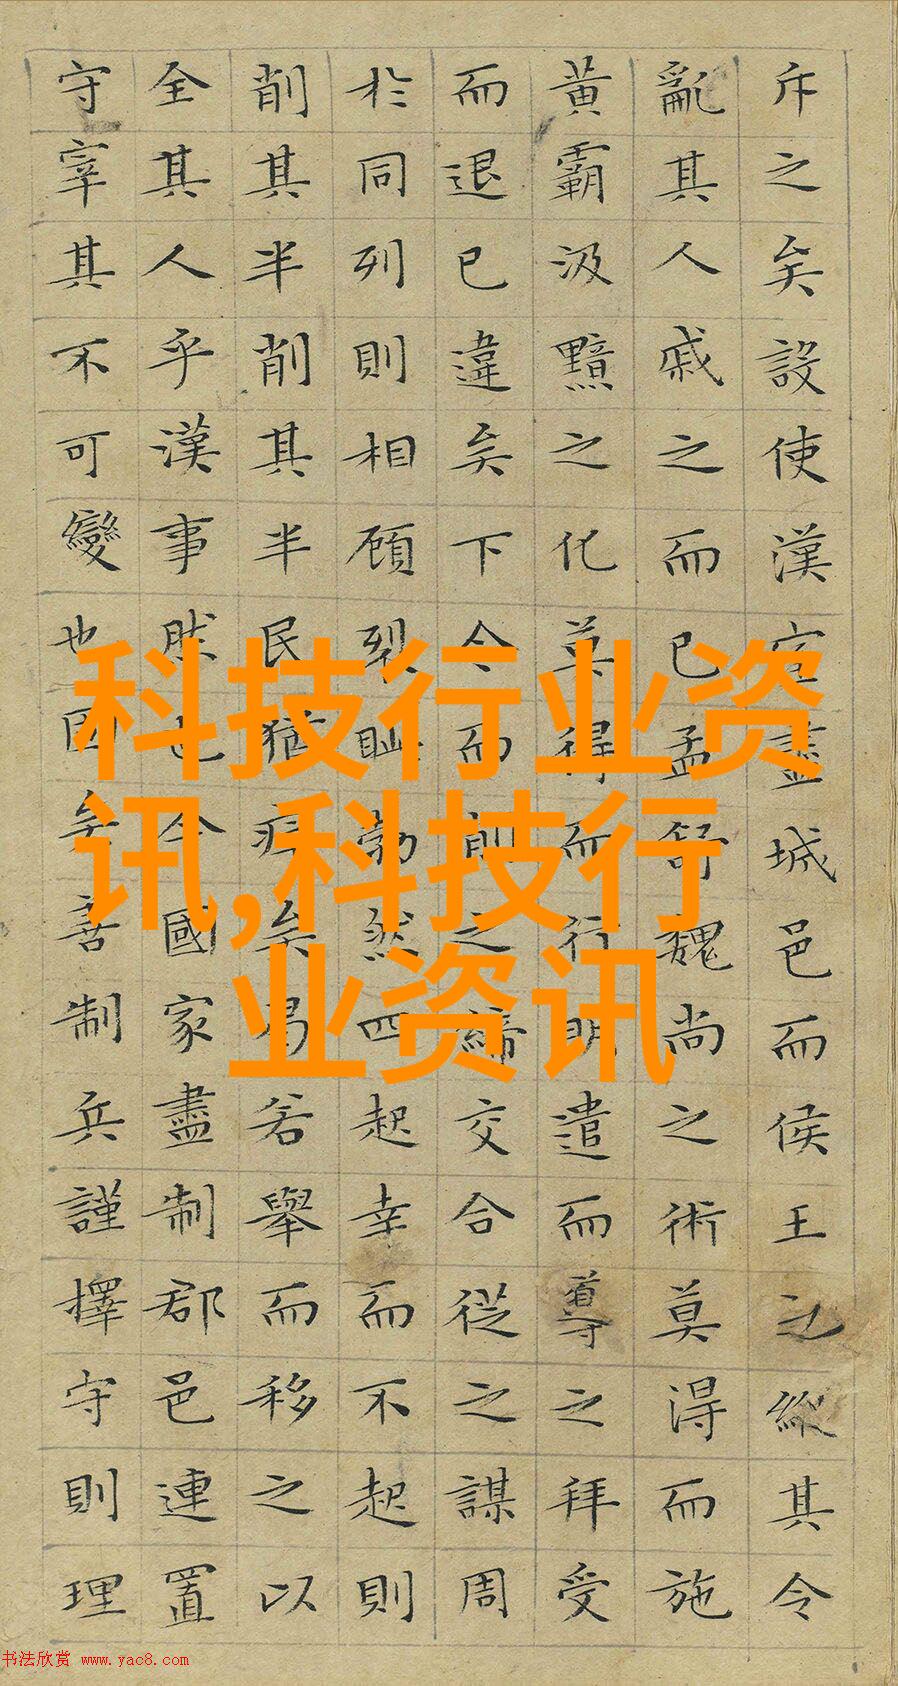 斥之矣設使漢宣盡城邑而侯王之縱其令
亂其人戚之而已孟舒魏尚之術莫得而施
黃霸汲黯之化莫得而行明遣而導之拜受
而退已違矣下令而削之締交合從之謀周
於同列則相顧裂眦勃然四起幸而不起則
削其半削其半民猶瘁矣曷若舉而移之以
全其人乎漢事然也今國家盡制郡邑連置
守宰其不可變也固矣善制兵謹擇守則理
科技行业资
讯,科技行
业资讯
书法欣赏 www.yac8.com